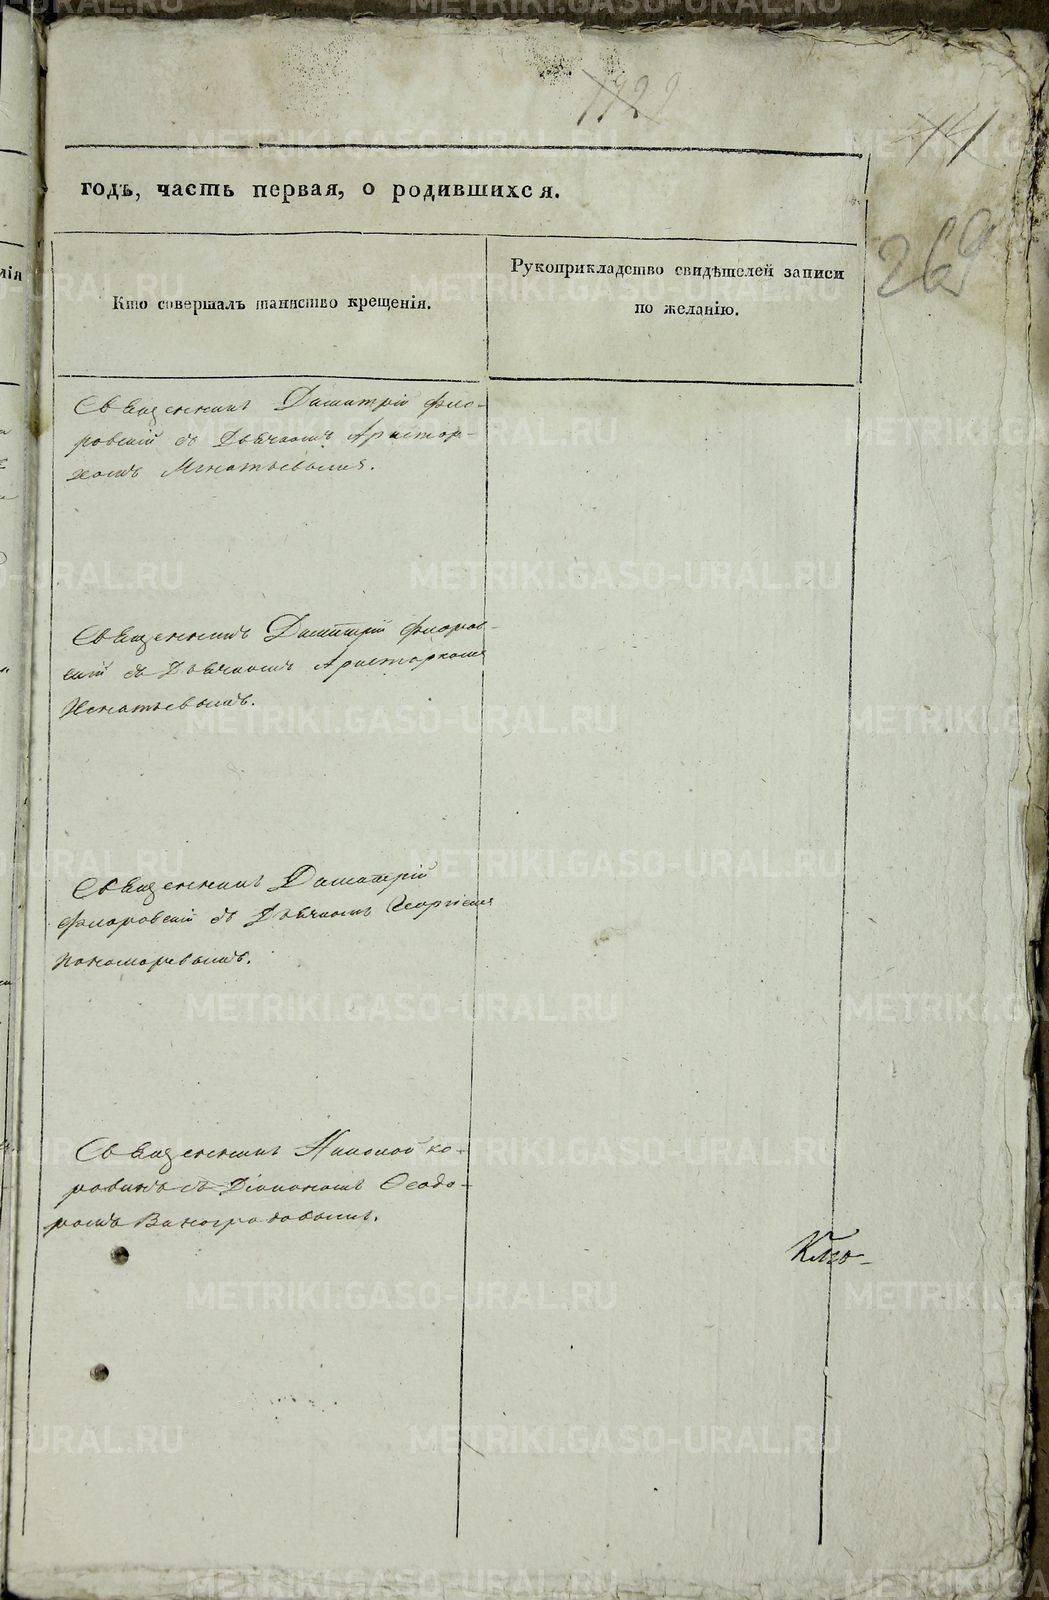 1922
141
269
годъ, часть первая, о родившихся.
Кто совершалъ таинство крещенія.
Рукоприкладство свидѣтелей записи
по желанію.
Священникъ Димитрій Фло-
ровскій съ Дьячкомъ Аристар-
хомъ Игнатьевымъ.
Священникъ Димитрій Флоров-
скій съ Дьячкомъ Аристархомъ
Игнатьевымъ.
Священникъ Димитрій
Флоровскій съ Дьячкомъ Георгіемъ
Пономаревымъ.
Священникъ Николай Ко-
ровинъ съ Діакономъ Ѳеодо-
ромъ Виноградовымъ.
METRIKI.GASO-URAL.RU